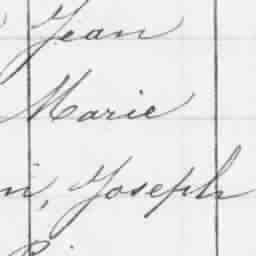 Jean
Marie
n, Joseph